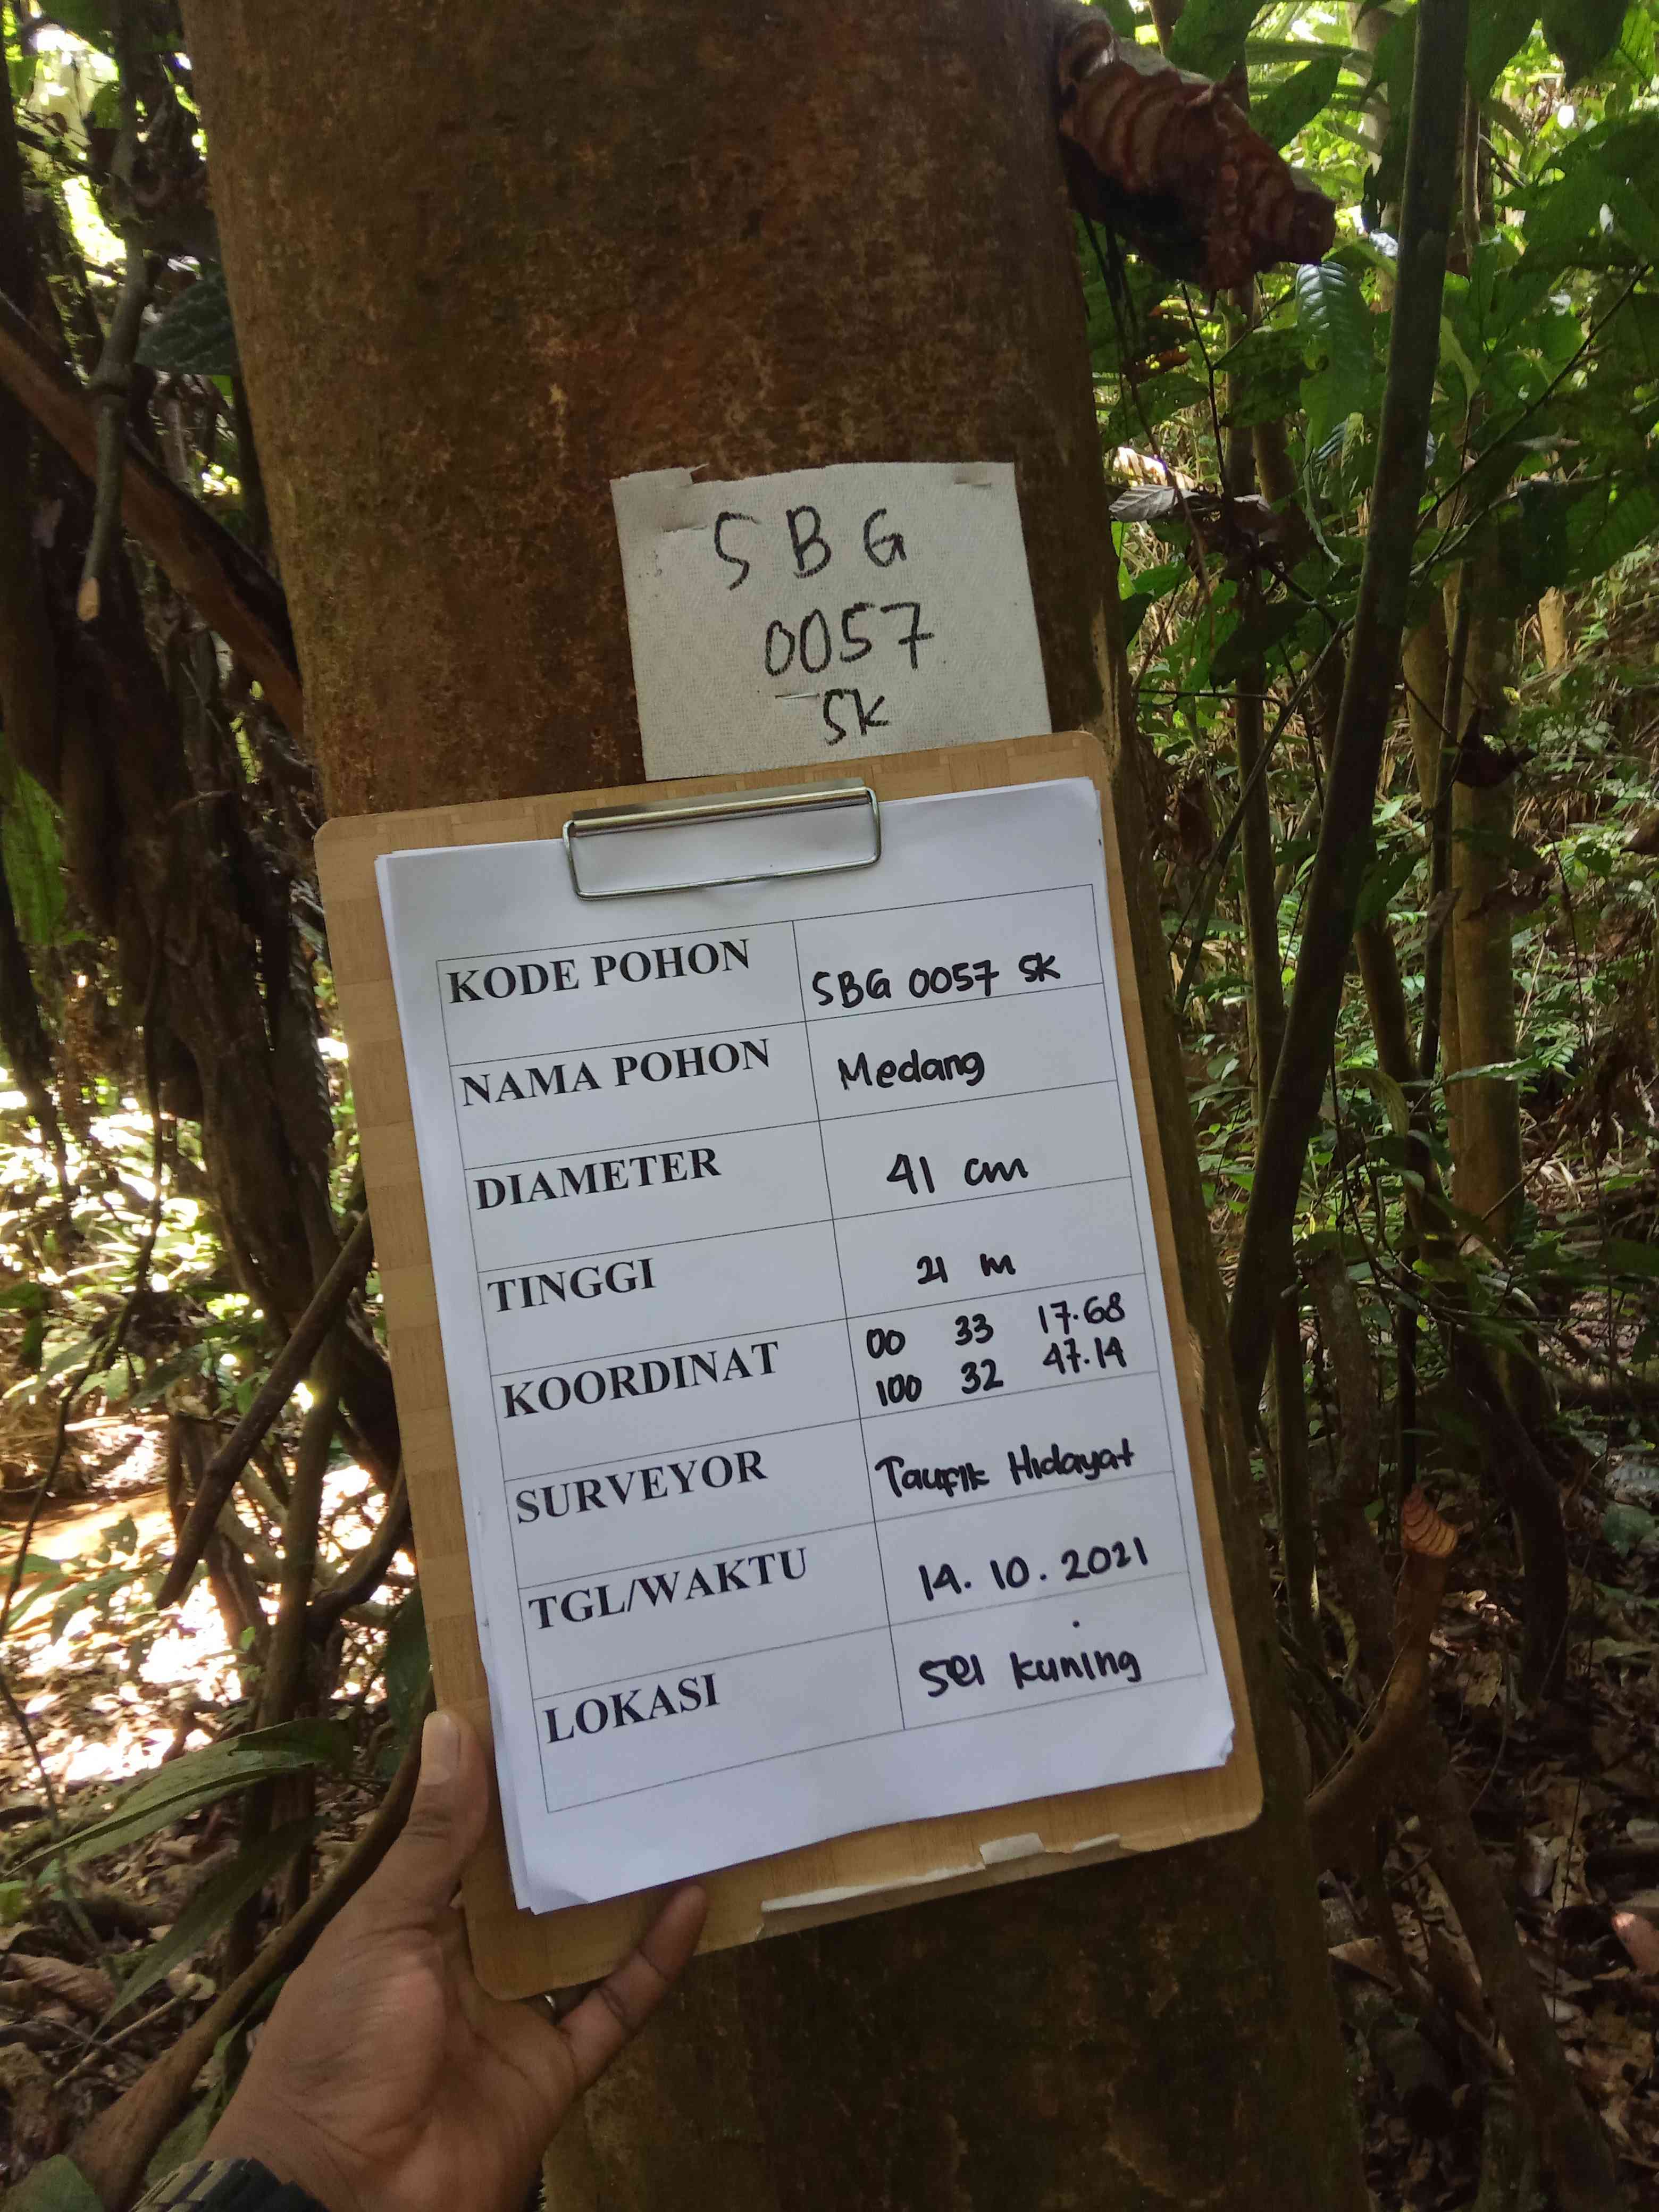 SBG
0057
SK
KODE POHON SBG 0057 SK
NAMA POHON Medang
DIAMETER 41 cm
TINGGI 21 m
KOORDINAT 00 33 17.68
100 32 47.14
SURVEYOR Taufik Hidayat
TGL/WAKTU 14.10.2021
LOKASI Sei Kuning